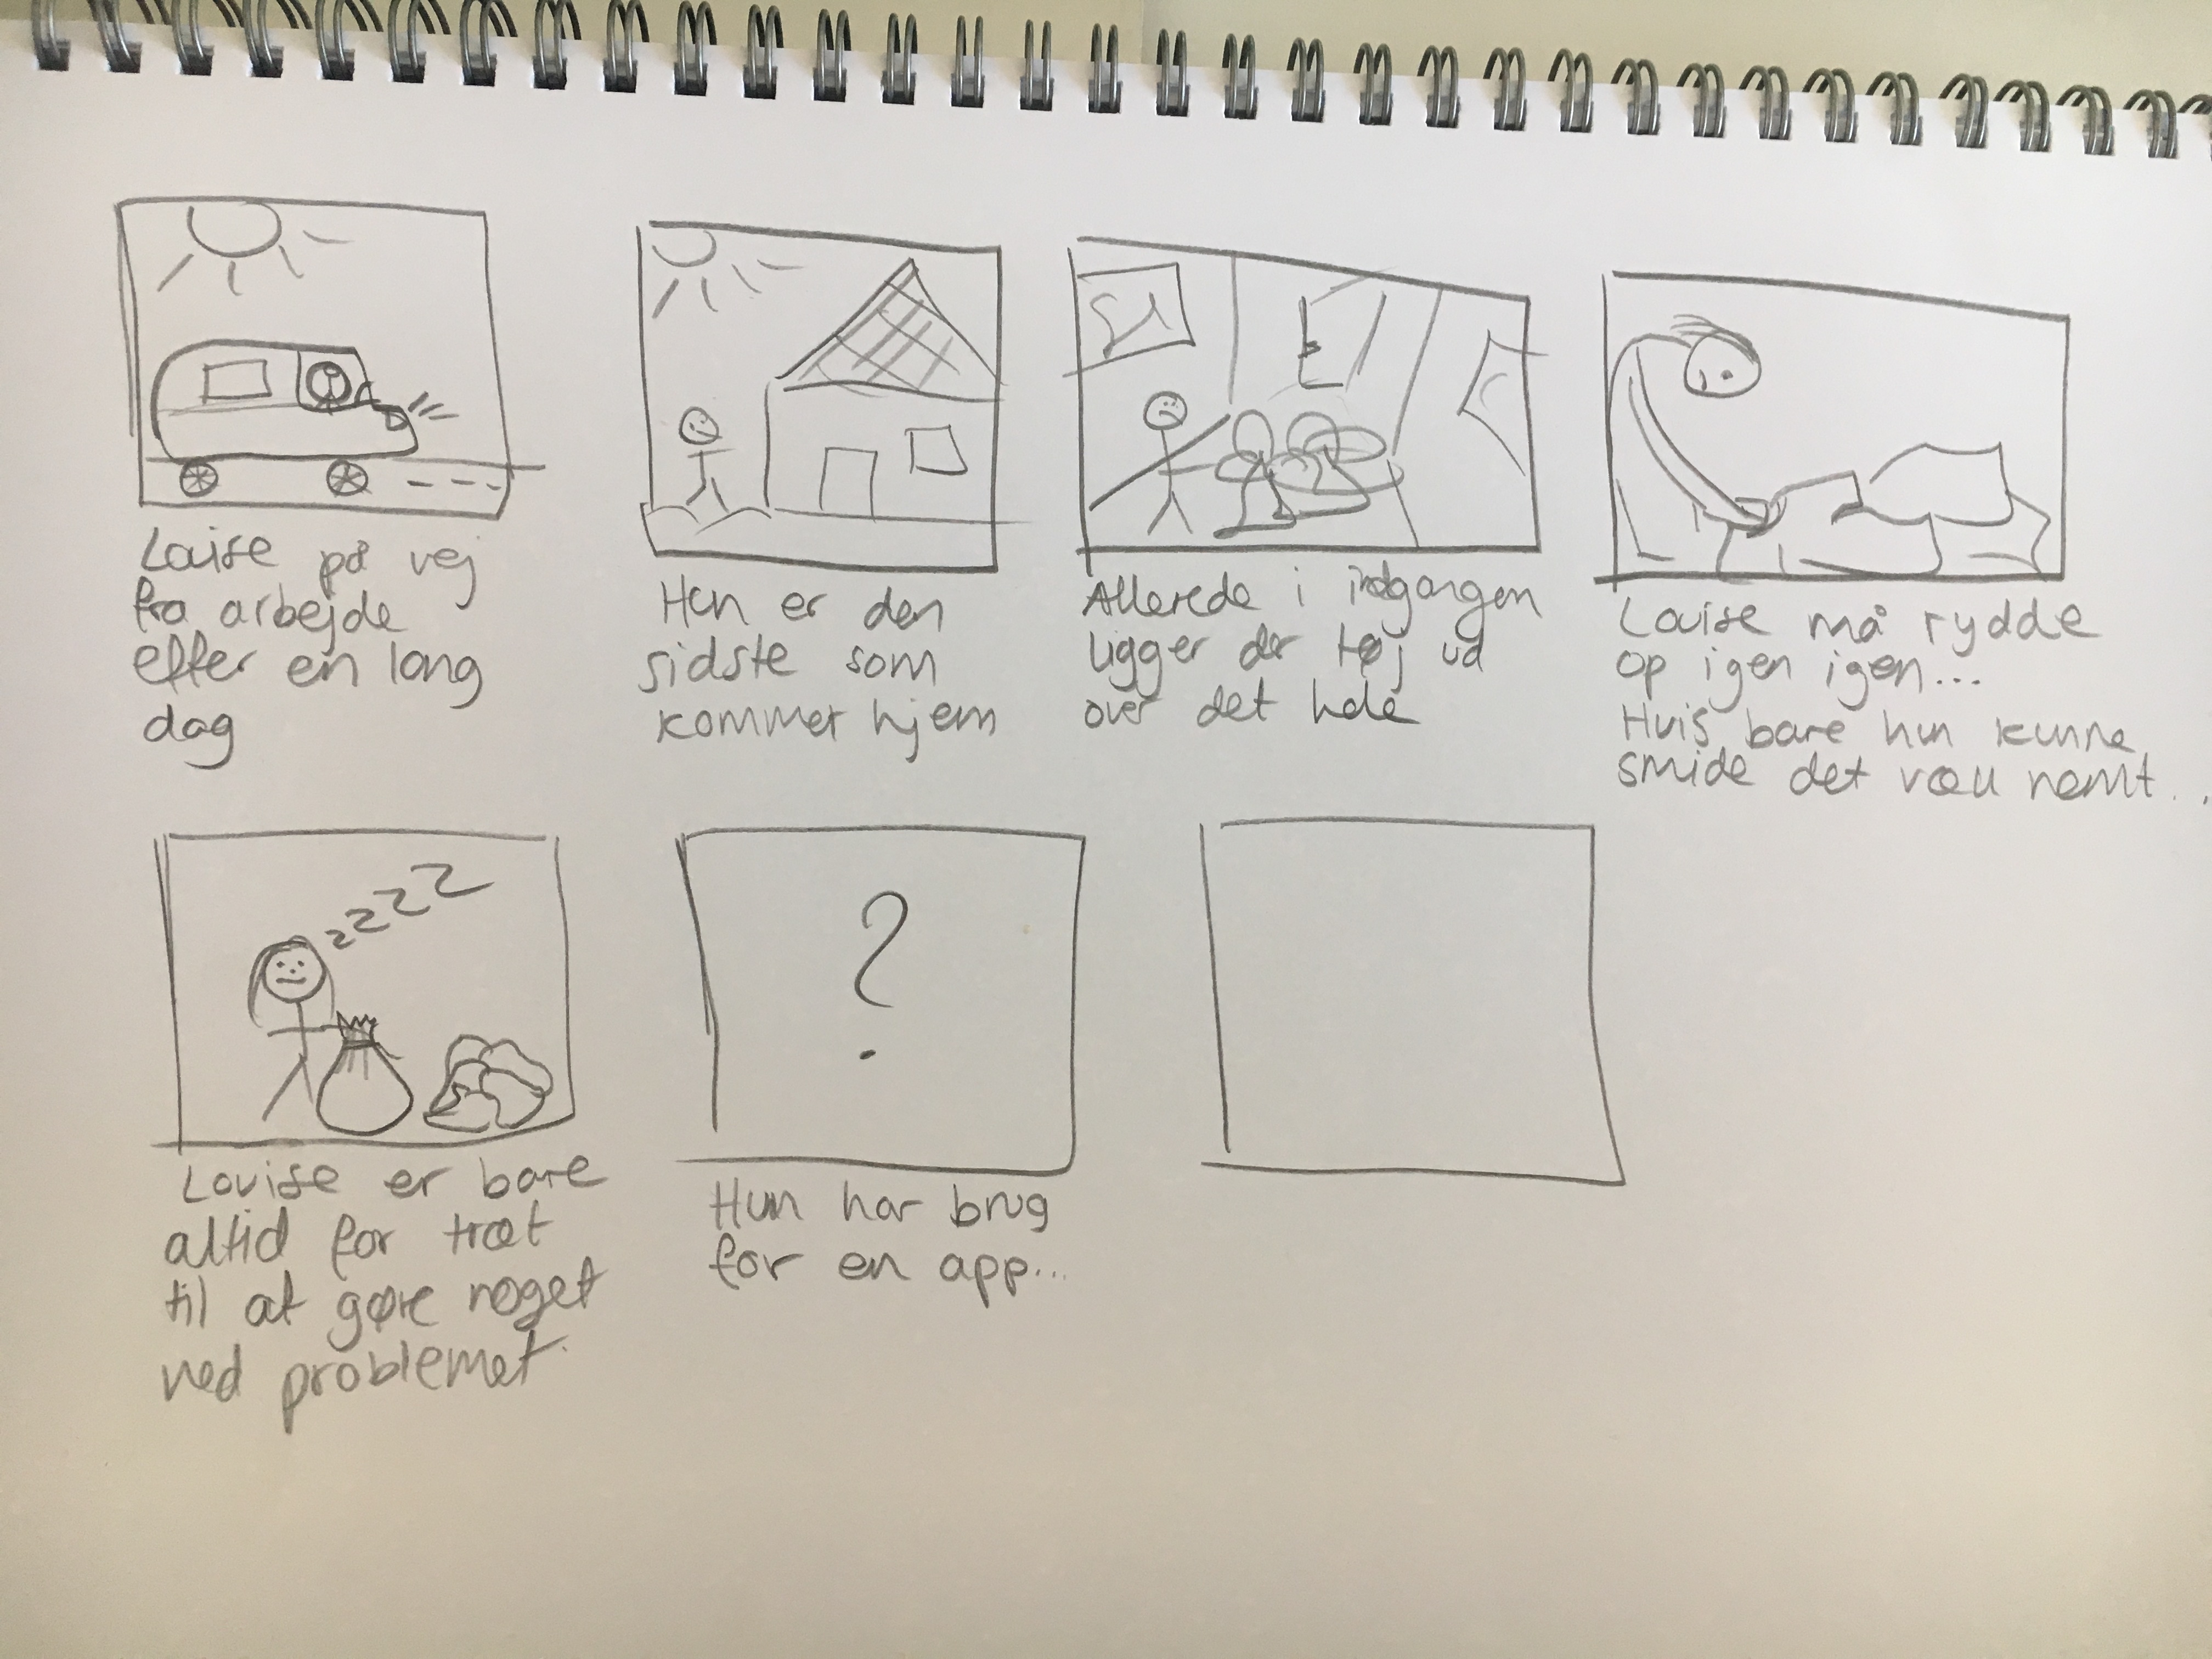 Louise på vej
fra arbejde
efter en lang
dag
Hun er den
sidste som
kommer hjem
Allerede i indgangen
ligger der tøj ud
over det hele
Louise må rydde
op igen igen...
Hvis bare hun kunne
smide det væk nemt...
zzzz
Louise er bare
altid for træt
til at gøre noget
ved problemet.
?
Hun har brug
for en app...